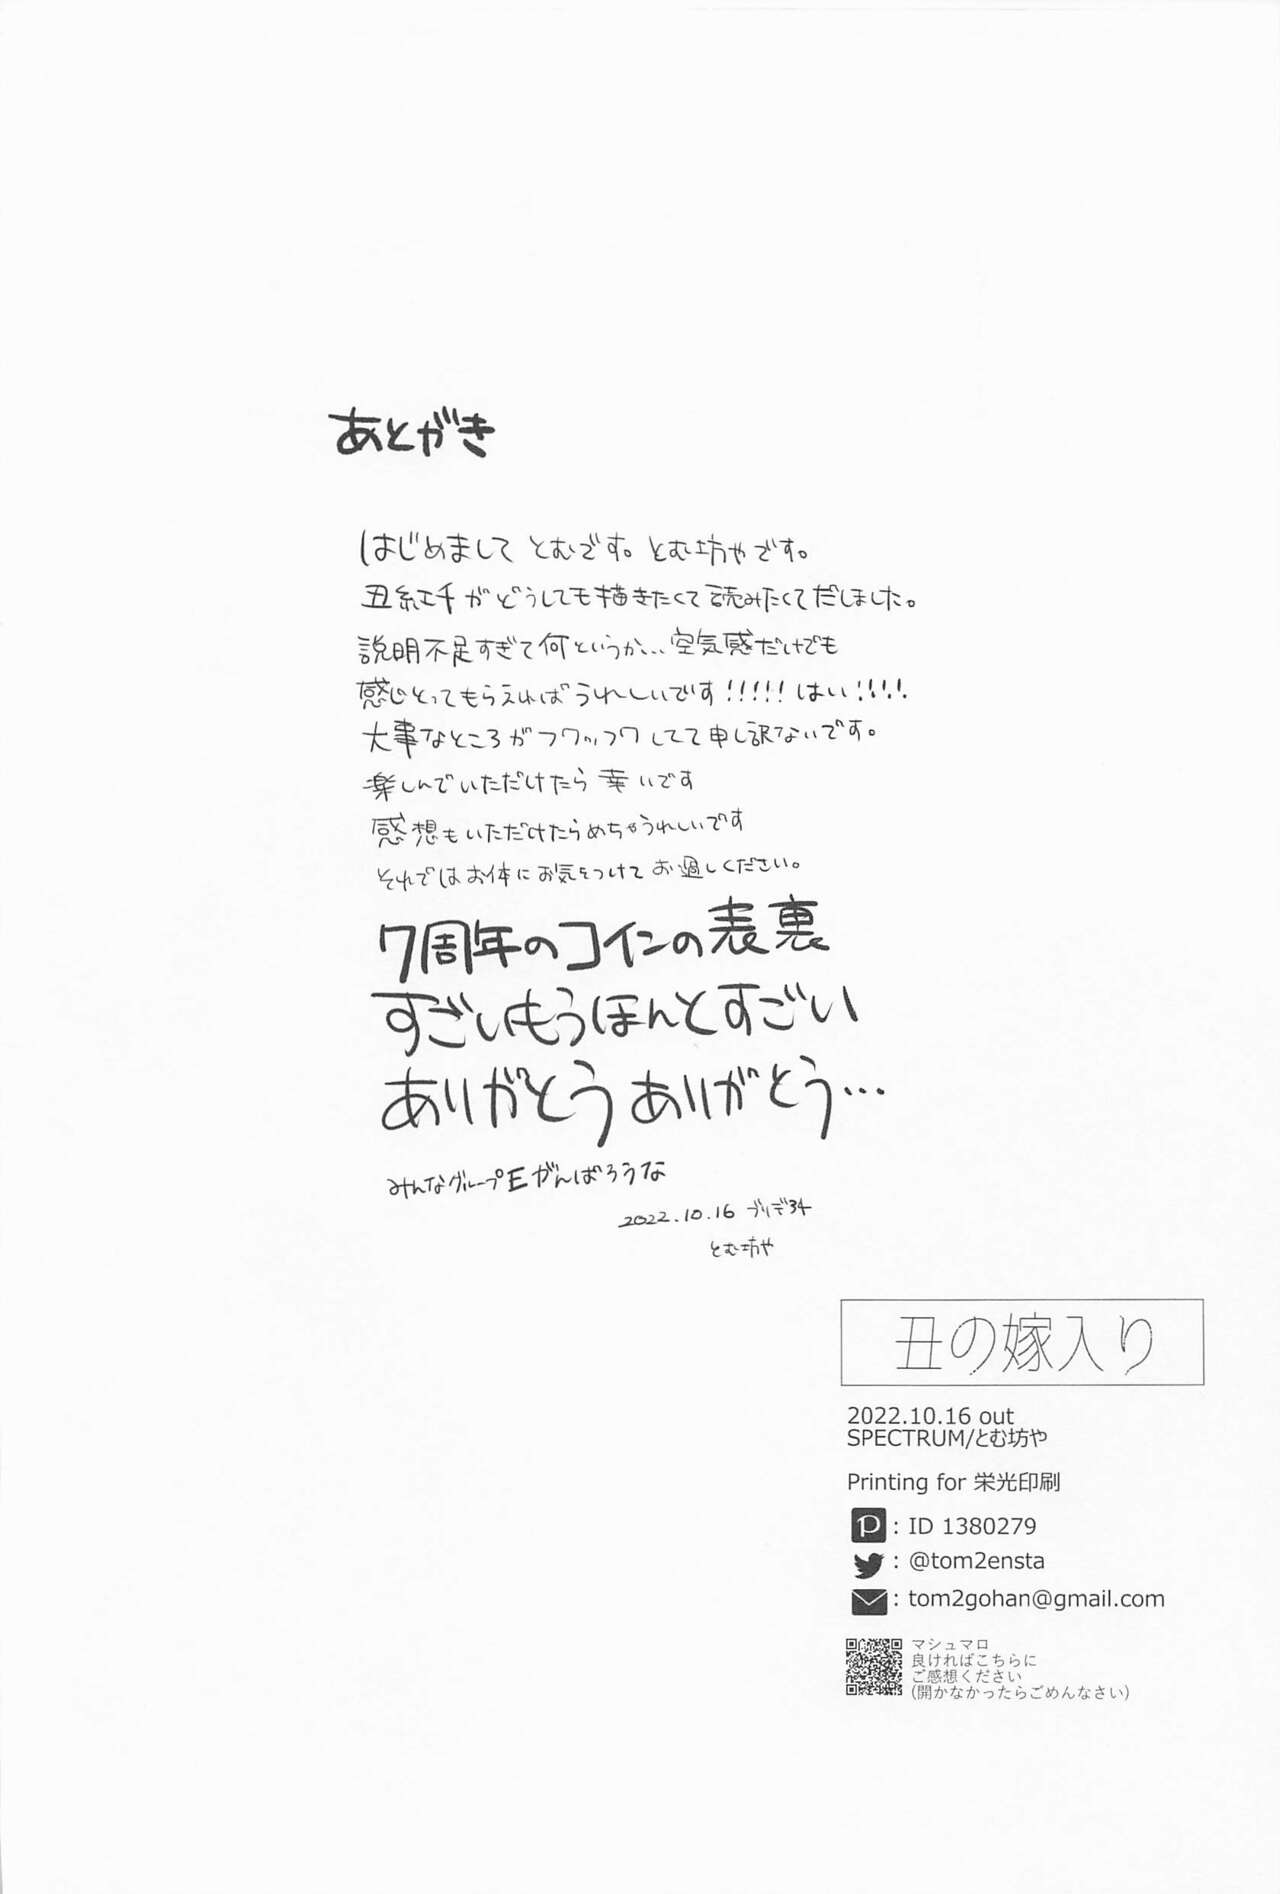 あとがき
はじめまして とむです。とむ坊やです。
丑紅千がどうしても描きたくて読みたくてだしました。
説明不足すぎて何というか…空気感だけでも
感じとってもらえればうれしいです!!!!!はい!!!!
大事なところがフワッフワしてて申し訳ないです。
楽しんでいただけたら幸いです
感想もいただけたらめちゃうれしいです
それではお体にお気をつけてお過しください。
7周年のコインの表裏
すごいもうほんとすごい
ありがとうありがとう…
みんなグループEがんばろうな
2022.10.16 ブリデ34
とむ坊や
丑の嫁入り
2022.10.16 out
SPECTRUM/とむ坊や
Printing for 栄光印刷
: ID 1380279
: @tom2ensta
: tom2gohan@gmail.com
マシュマロ
良ければこちらに
ご感想ください
(開かなかったらごめんなさい)